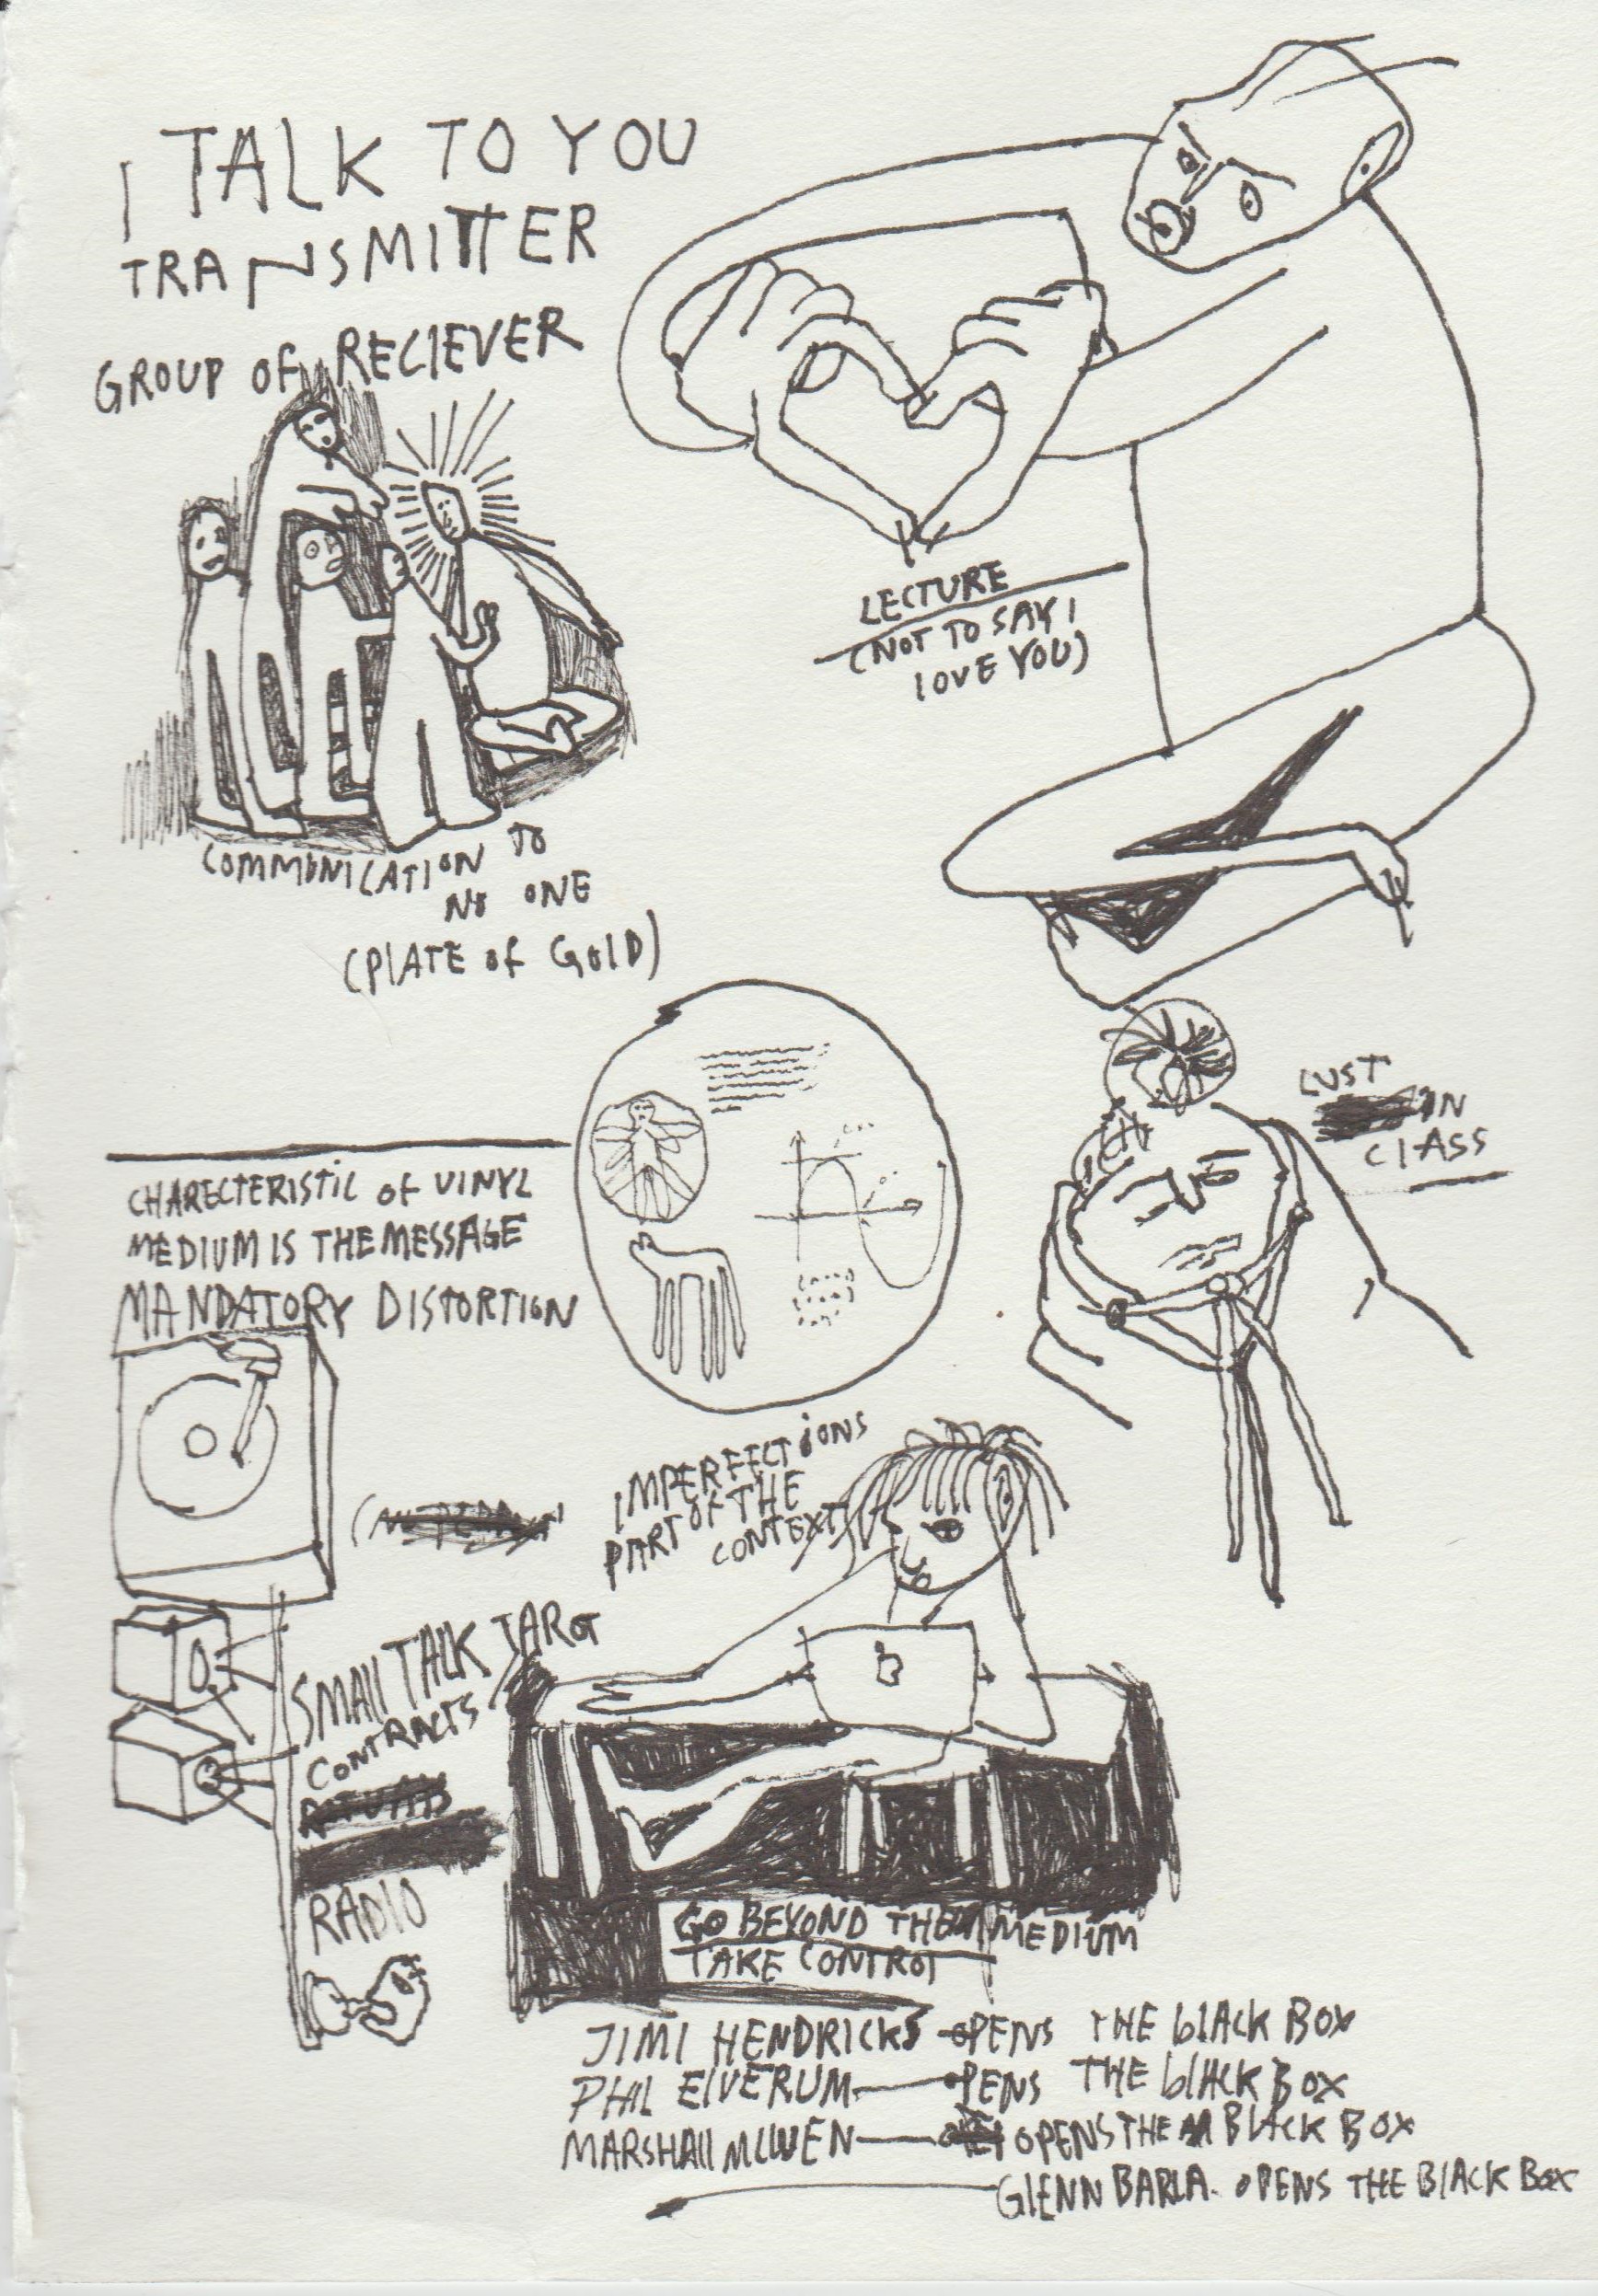 I TALK TO YOU
TRANSMITTER
GROUP OF RECIEVER
LECTURE
(NOT TO SAY I
LOVE YOU)
COMMUNICATION TO
NO ONE
(PLATE OF GOLD)
LUST
IN
CLASS
CHARECTERISTIC OF VINYL
MEDIUM IS THE MESSAGE
MANDATORY DISTORTION
IMPERFECTIONS
PART OF THE
CONTEXT
SMALL TALK JARG
CONTRACTS
RADIO
GO BEYOND THE MEDIUM
TAKE CONTROL
JIMI HENDRICKS OPENS THE BLACK BOX
PHIL ELVERUM OPENS THE BLACK BOX
MARSHALL OPENS THE BLACK BOX
GLENN OPENS THE BLACK BOX